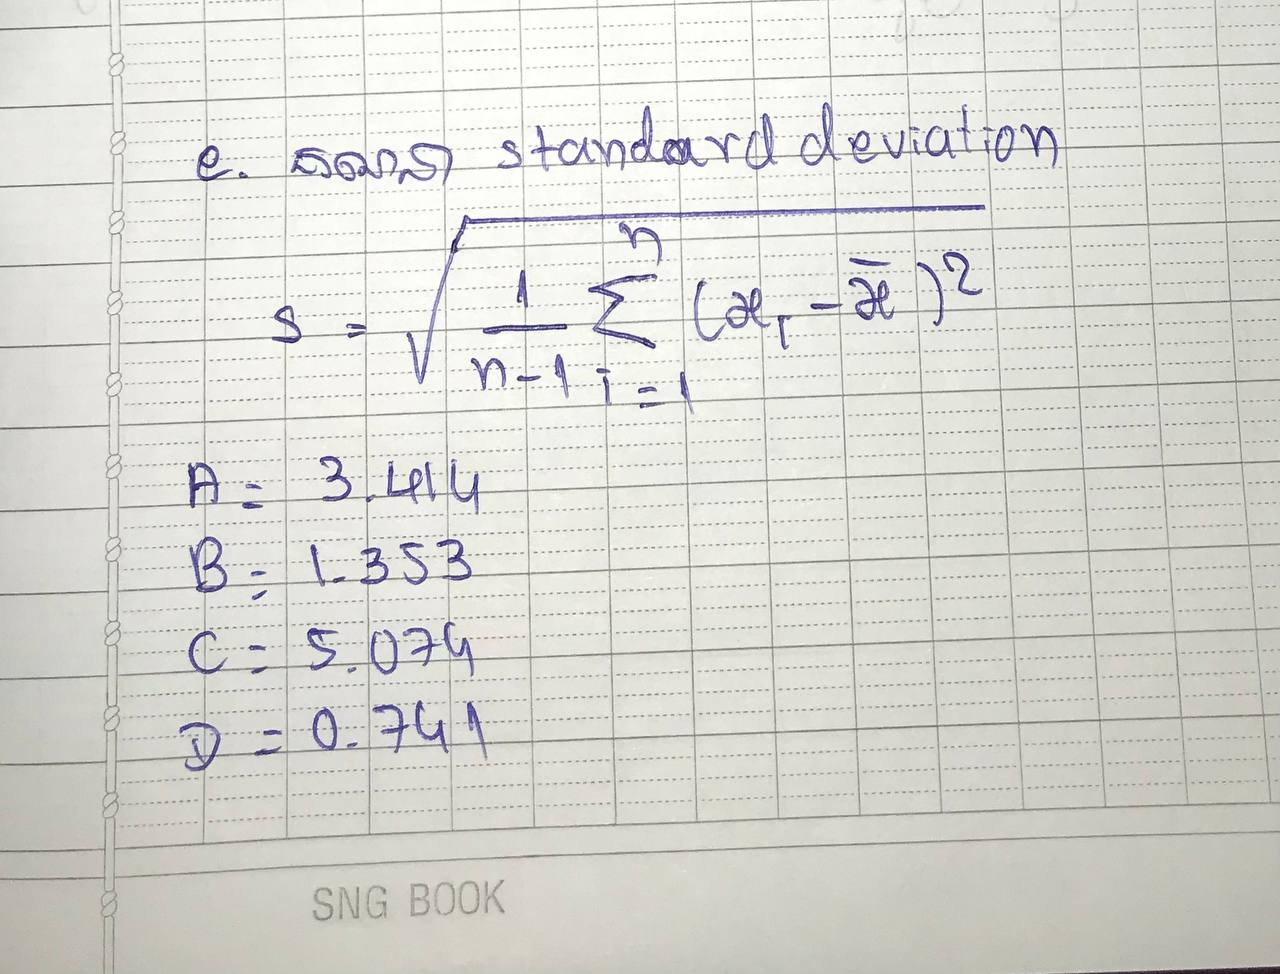 e. គណនា standard deviation
s = √(1/(n-1) Σ_{i=1}^{n} (x_i - x̄)²)
A = 3.414
B = 1.353
C = 5.074
D = 0.741
SNG BOOK